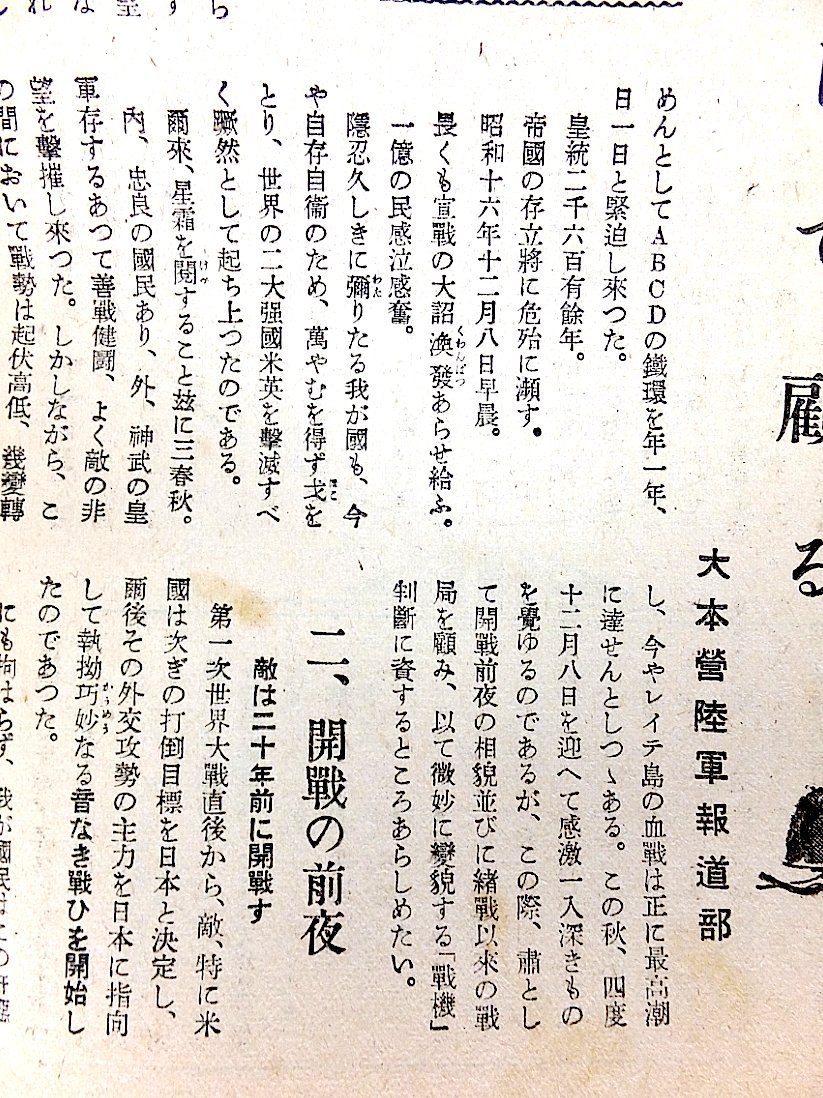 て顧る
大本營陸軍報道部
めんとしてＡＢＣＤの鐵環を年一年、
日一日と緊迫し來つた。
皇統二千六百有餘年。
帝國の存立將に危殆に瀕す。
昭和十六年十二月八日早晨。
畏くも宣戰の大詔渙發あらせ給ふ。
くわんぱつ
一億の民感泣感奮。
隱忍久しきに彌りたる我が國も、今
わた
や自存自衞のため、萬やむを得ず戈を
ほこ
とり、世界の二大强國米英を擊滅すべ
く蹶然として起ち上つたのである。
爾來、星霜を閱すること玆に三春秋。
けみ
內、忠良の國民あり、外、神武の皇
軍存するあつて善戰健鬪、よく敵の非
望を擊摧し來つた。しかしながら、こ
の間において戰勢は起伏高低、幾變轉
し、今やレイテ島の血戰は正に最高潮
に達せんとしつゝある。この秋、四度
十二月八日を迎へて感激一入深きもの
を覺ゆるのであるが、この際、肅とし
て開戰前夜の相貌並びに緒戰以來の戰
局を顧み、以て微妙に變貌する「戰機」
判斷に資するところあらしめたい。
二、開戰の前夜
敵は二十年前に開戰す
第一次世界大戰直後から、敵、特に米
國は次ぎの打倒目標を日本と決定し、
爾後その外交攻勢の主力を日本に指向
して執拗巧妙なる音なき戰ひを開始し
かうめう
たのであつた。
にも拘はらず、我が國民はこの